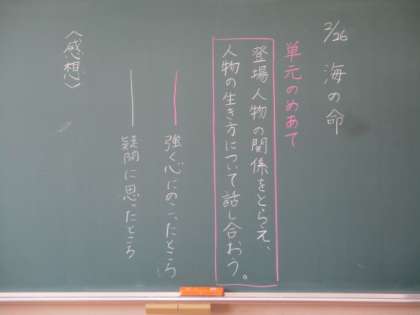 2/26 海の命
単元のめあて
登場人物の関係をとらえ、
人物の生き方について話し合おう。
強く心にのこったところ
疑問に思ったところ
〈感想〉